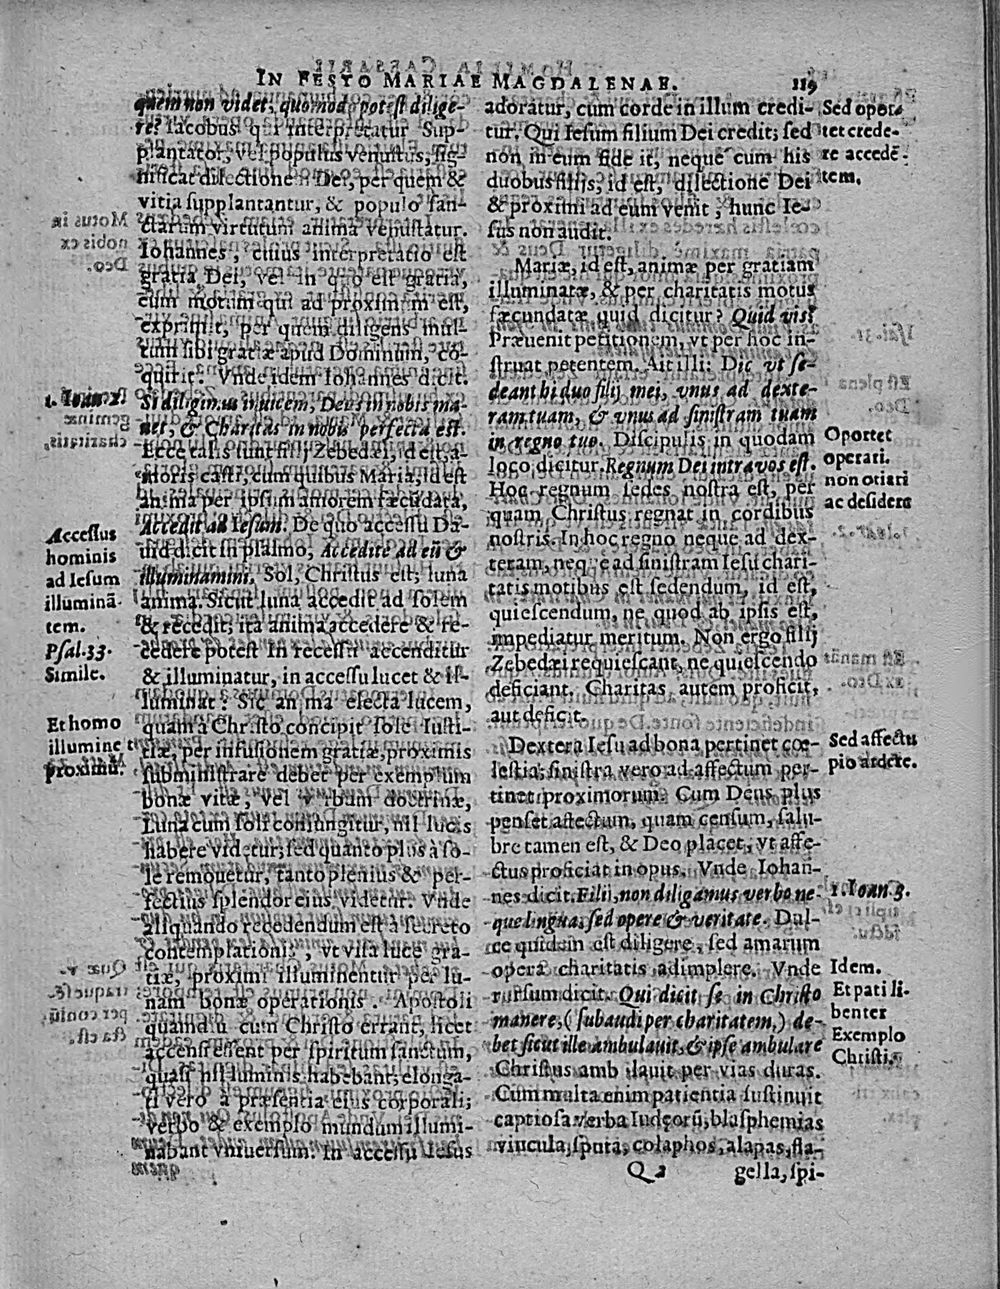 IN FESTO MARIAE MAGDALENAE. 119
quem non videt, quomodo potest dilige-
re? Iacobus qui interpretatur Sup-
plantator, vel populus venustus, sig-
nificat dilectionē Dei, per quem &
vitia supplantantur, & populo san-
ctarum virtutum anima venustatur.
Iohannes, cuius interpretatio est
gratia Dei, vel in quo est gratia,
eum motum qui ad proximum est,
exprimit, per quem diligens mul-
tum sibi gratiæ apud Dominum, co-
quirit. Vnde idem Iohannes dicit.
Si diligimus inuicem, Deus in nobis ma-
net, & Charitas in nobis perfecta est.
Ecce tales sunt filij Zebedæi, id est, a-
moris casti, cum quibus Maria, id est
anima per ipsum amorem fæcūdata,
Accedit ad Iesum. De quo accessu Da-
uid dicit in psalmo, Accedite ad eū &
illuminamini. Sol, Christus est; luna
anima. Sicut luna accedit ad solem
& recedit; ita anima accedere & re-
cedere potest In recessu accenditur
& illuminatur, in accessu lucet & il-
luminat: Sic anima electa lucem,
quam à Christo concipit sole Iusti-
tiæ, per infusionem gratiæ, proximis
subministrare debet per exemplum
bonæ vitæ, vel verbum doctrinæ,
Luna cum soli coniungitur, nil lucis
habere videtur; sed quanto plus à so-
le remouetur, tanto plenius & per-
fectius splendor eius videtur. Vnde
aliquando recedendum est à secreto
contemplationis, vt visa luce gra-
tiæ, proximi illuminentur per lu-
nam bonæ operationis. Apostoli
quamdiu cum Christo errant, licet
accensi essent per spiritum sanctum,
quasi nil luminis habebant; elonga-
ti vero à præsentia eius corporali;
verbo & exemplo mundum illumi-
nabant vniuersum. In accessu Iesus
1. Ioan. 4.
Accessus
hominis
ad Iesum
illuminā-
tem.
Psal. 33.
Simile.
Et homo
illumine t
proximū.
adoratur, cum corde in illum credi-
tur. Qui Iesum filium Dei credit; sed
non in eum fide it, neque cum his
duobus filiis, id est, dilectione Dei
& proximi ad eum venit, hunc Ie-
sus non audit.
Mariæ, id est, animæ per gratiam
illuminatæ, & per charitatis motus
fæcundatæ quid dicitur? Quid vis?
Præuenit petitionem, vt per hoc in-
struat petentem. Ait illi: Dic vt se-
deant hi duo filij mei, vnus ad dexte-
ram tuam, & vnus ad sinistram tuam
in regno tuo. Discipulis in quodam
loco dicitur. Regnum Dei intra vos est.
Hoc regnum sedes nostra est, per
quam Christus regnat in cordibus
nostris. In hoc regno neque ad dex-
teram, neque ad sinistram Iesu chari-
tatis motibus est sedendum, id est,
quiescendum, ne quod ab ipsis est,
impediatur meritum. Non ergo filij
Zebedæi requiescant, ne quiescendo
deficiant. Charitas autem proficit,
aut deficit.
Dextera Iesu ad bona pertinet cœ-
lestia; sinistra vero ad affectum per-
tinet proximorum. Cum Deus plus
penset affectum, quam censum, salu-
bre tamen est, & Deo placet, vt affe-
ctus proficiat in opus. Vnde Iohan-
nes dicit. Filij, non diligamus verbo ne-
que lingua, sed opere & veritate. Dul-
ce quidem est diligere, sed amarum
opera charitatis adimplere. Vnde
rursum dicit. Qui dicit se in Christo
manere, (subaudi per charitatem,) de-
bet sicut ille ambulauit, & ipse ambulare
Christus ambulauit per vias duras.
Cum multa enim patientia sustinuit
captiosa verba Iudeorū; blasphemias
vincula, sputa, colaphos, alapas, fla-
Q 2 gella, spi-
Sed oporte
tet crede-
re accedē-
tem.
Oportet
operati.
non otiari
ac desidera
Sed affectu
pio ardere.
1. Ioan 3.
Idem.
Et pati li-
benter
Exemplo
Christi.